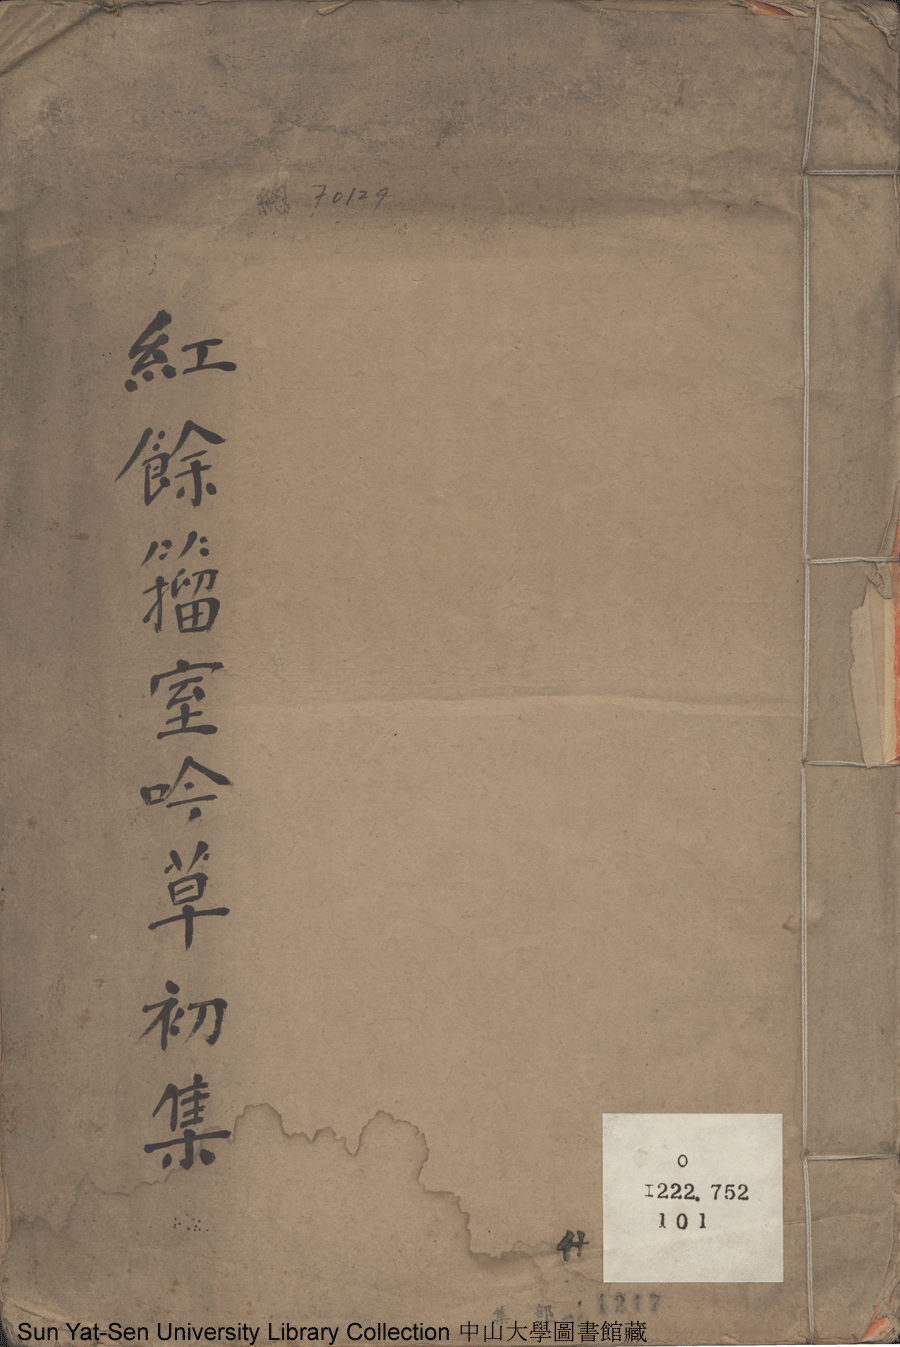 總 70129
紅餘籀室吟草初集
O
I222.752
101
集部 1217
Sun Yat-Sen University Library Collection 中山大學圖書館藏